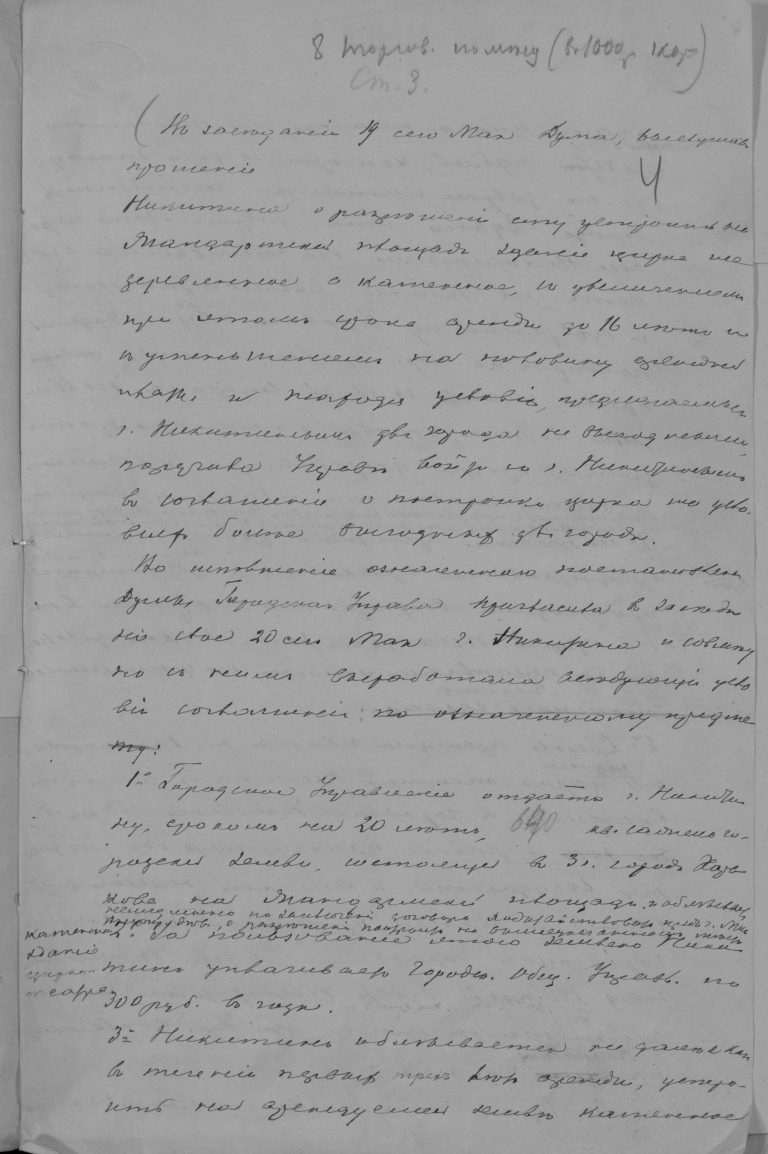 8 торгов. полицу (в 1000 экз)
Ст. 3.
4
(Въ засѣданіи 19 сего Мая Дума, выслушавъ
прошеніе
Никитина о разрѣшеніи ему устроить на
площади зданіе цирка не
деревянное а каменное, съ увеличеніемъ
при этомъ срока аренды до 16 лѣтъ и
съ уменьшеніемъ на половину арендной
платы и находя условія, предлагаемыя
г. Никитинымъ для города не выгодными
поручила Управѣ войти съ г. Никитинымъ
въ соглашеніе о постройкѣ цирка на усло-
віяхъ болѣе выгодныхъ для города.
Во исполненіе означеннаго постановленія
Думы, Городская Управа пригласила въ засѣда-
ніе свое 20 сего Мая г. Никитина и совмѣст
но съ нимъ выработала слѣдующія усло
вія соглашенія: по означенному предме
ту:
1е Городское Управленіе отдаетъ г. Никити
ну, срокомъ на 20 лѣтъ, 640 кв. саженъ го-
родской земли, состоящей въ г. городѣ Харь
ковѣ на площади, и обязывает
немедленно по заключеніи договора предъ г. Ми
о разрѣшеніи
каменное
зданіе
цирка
2. За пользованіе этою землею Ники
тинъ уплачиваетъ Городск. Общ. Управ. по
300 руб. въ годъ.
3е Никитинъ обязывается не далѣе какъ
въ теченіи первыхъ трехъ лѣтъ аренды, устро-
ить на арендуемой землѣ каменное